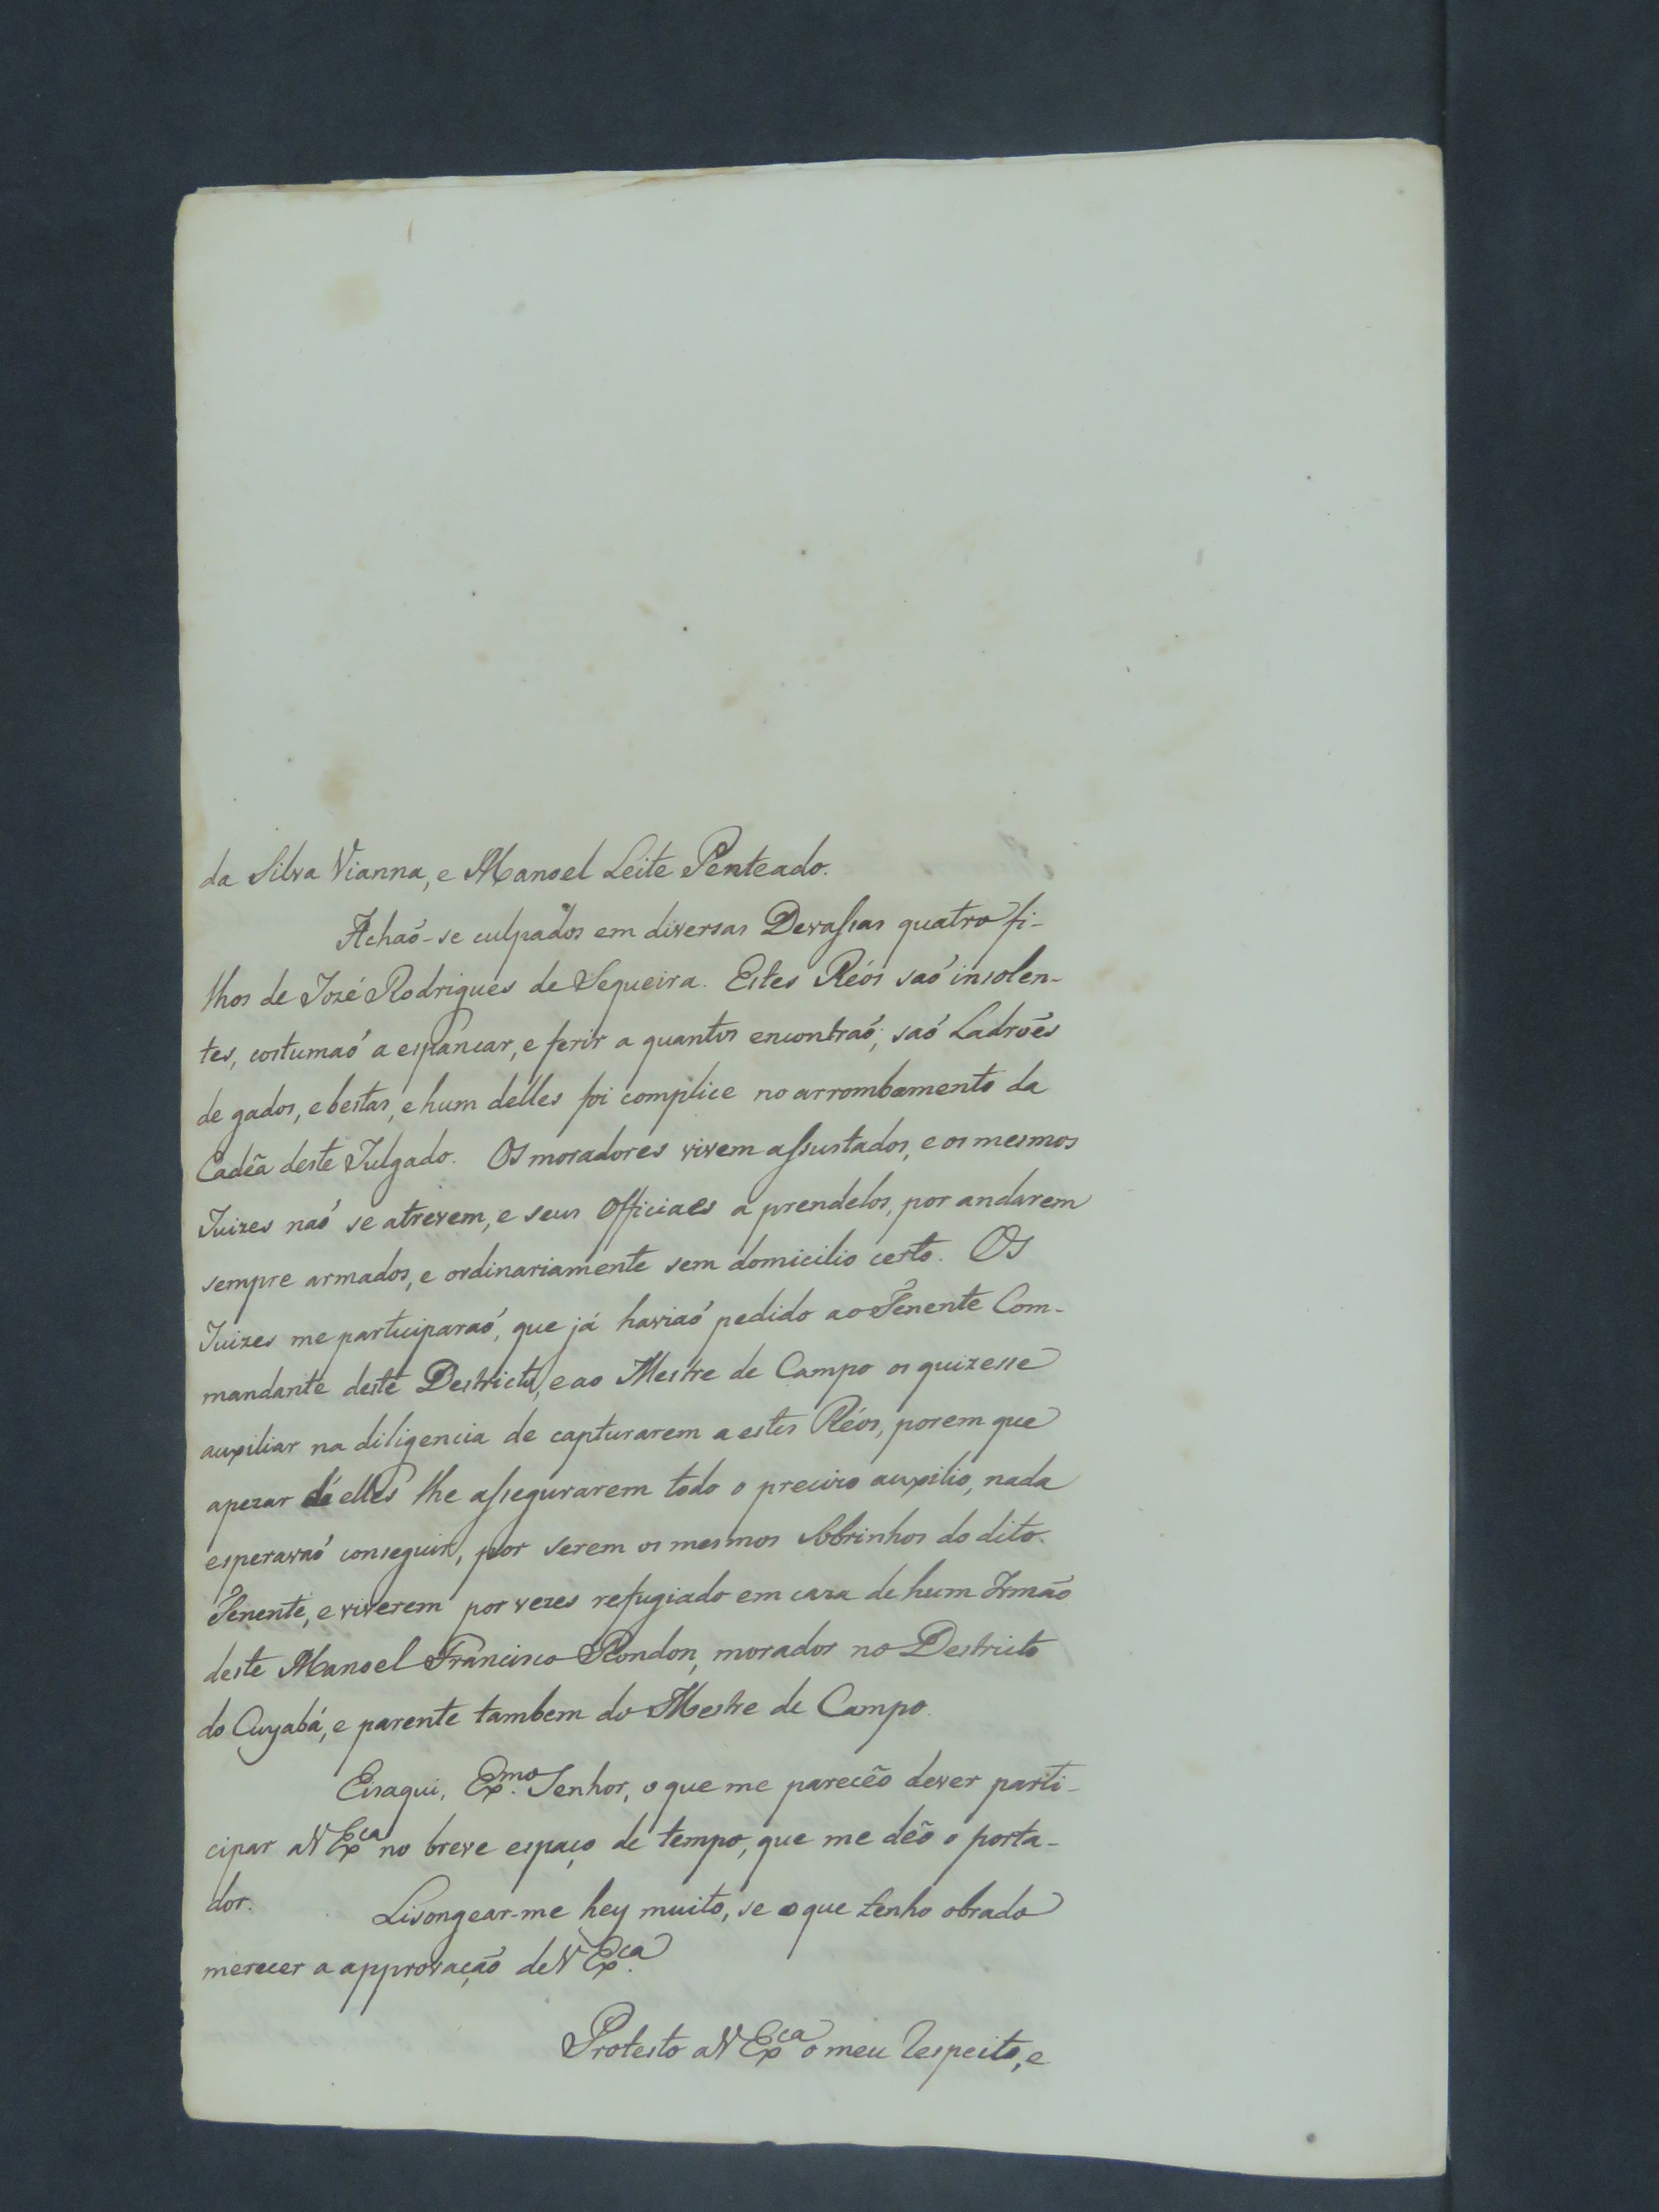 da Silva Vianna, e Manoel Leite Penteado.
Achaõ-se culpados em diversas Devassas quatro fi-
lhos de José Rodrigues de Sequeira. Estes Réos saõ insolen-
tes, costumaõ a espancar, e ferir a quantos encontraõ; saõ Ladroẽs
de gados, e bestas, e hum delles foi complice no arrombamento da
Cadẽa deste Julgado. Os moradores vivem assustados, e os mesmos
Juizes naõ se atrevem, e seus Officiaes a prendelos, por andarem
sempre armados, e ordinariamente sem domicilio certo. Os
Juizes me participaraõ, que já haviaõ pedido ao Tenente Com-
mandante deste Destricto, e ao Mestre de Campo os quizesse
auxiliar na diligencia de capturarem a estes Réos, porem que
apezar de elles lhe assegurarem todo o precizo auxilio, nada
esperavaõ conseguir, por serem os mesmos Sobrinhos do dito
Tenente, e viverem por vezes refugiado em caza de hum Irmaõ
deste Manoel Francisco Rondon, morador no Destricto
do Cuyabá, e parente tambem do Mestre de Campo.
Eisaqui, Ex.mo Senhor, o que me pareceõ dever parti-
cipar a V Ex.ca no breve espaço de tempo, que me deõ o porta-
dor. Lisongear-me hey muito, se o que tenho obrado
merecer a approvaçaõ de V Ex.ca
Protesto a V Ex.ca o meu Respeito, e